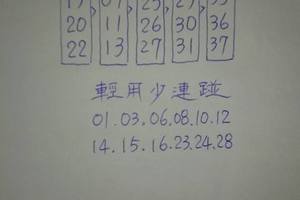 20 11 26 30 36
22 13 27 31 37
輕用少連踫
01.03.06.08.10.12
14.15.16.23.24.28